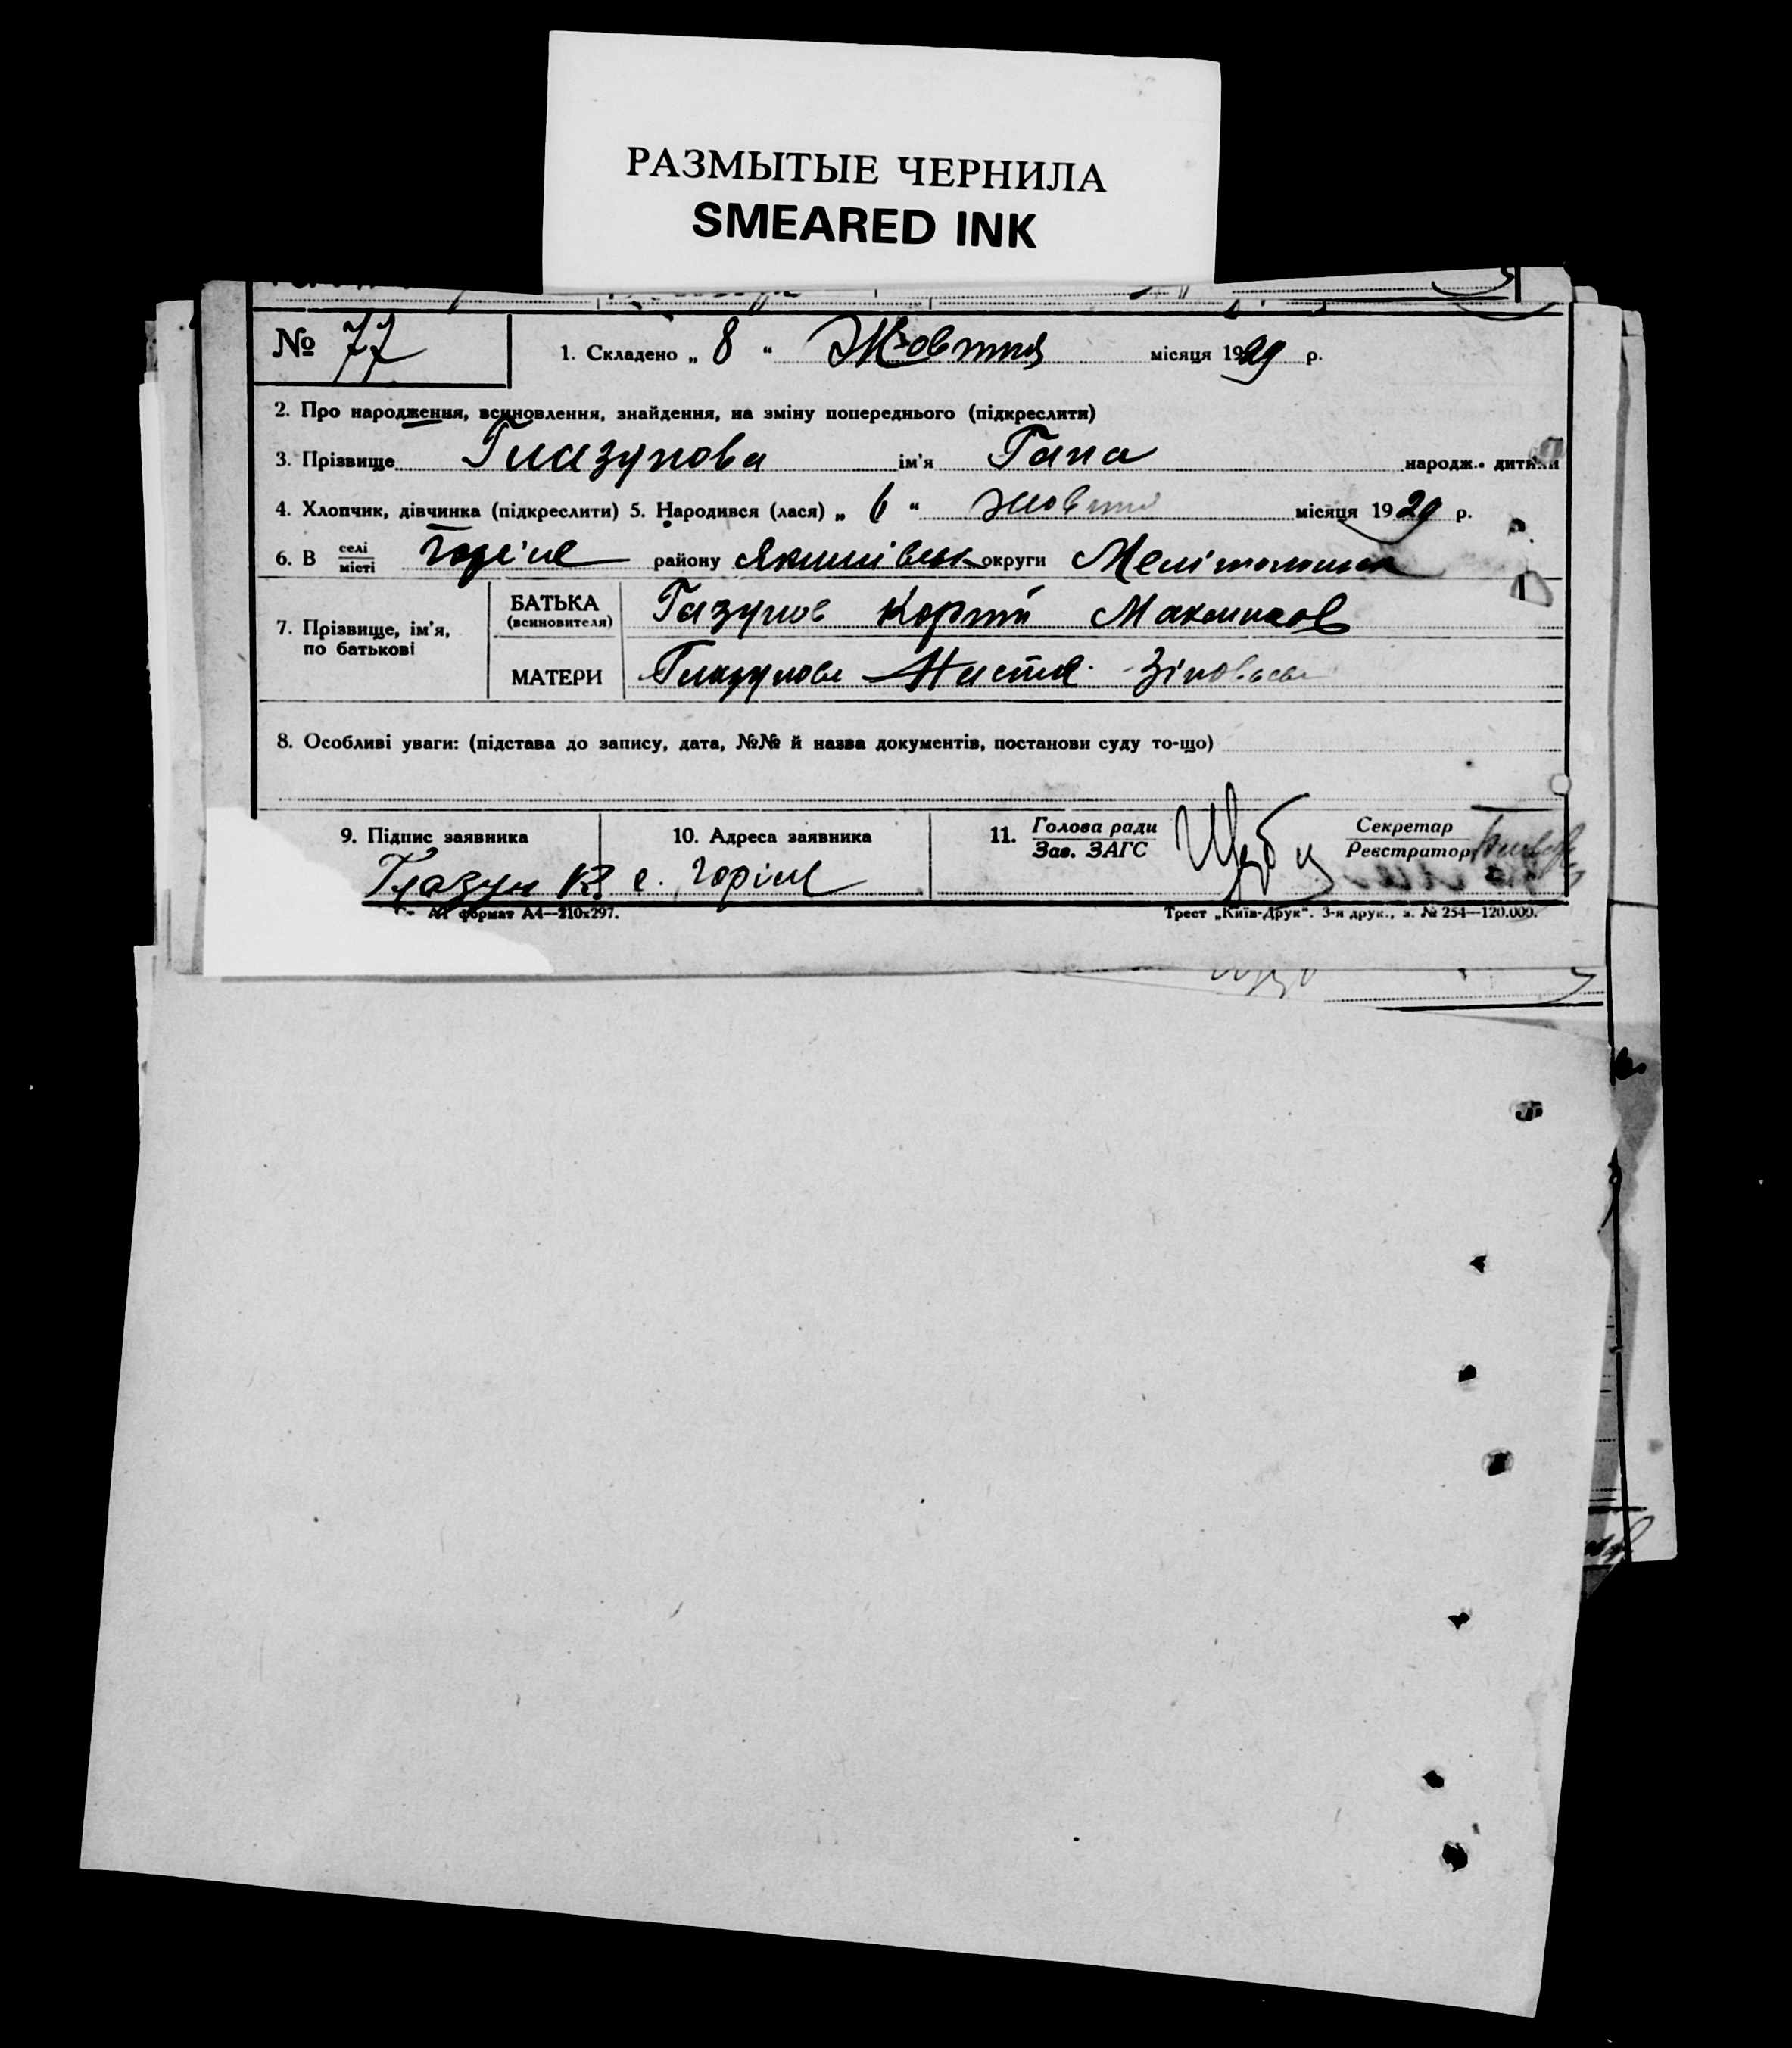 РАЗМЫТЫЕ ЧЕРНИЛА
SMEARED INK
№ 77
1. Складено „ 8 “ Жовтня місяця 1929 р.
2. Про народження, всиновлення, знайдення, на зміну попереднього (підкреслити)
3. Прізвище Глазунова ім'я Гана народж. дитини
4. Хлопчик, дівчинка (підкреслити) 5. Народився (лася) „ 6 “ жовтня місяця 1929 р.
6. В селі місті району округи
7. Прізвище, ім'я, по батькові
БАТЬКА (всиновителя) Газунов
МАТЕРИ Глазунова Настя
8. Особливі уваги: (підстава до запису, дата, №№ й назва документів, постанови суду то-що)
9. Підпис заявника
10. Адреса заявника
11. Голова ради Зав. ЗАГС
Секретар Реєстратор
Глазун с.
формат А4—210х297.
Трест „Київ-Друк“. 3-я друк., з. № 254—120.000.